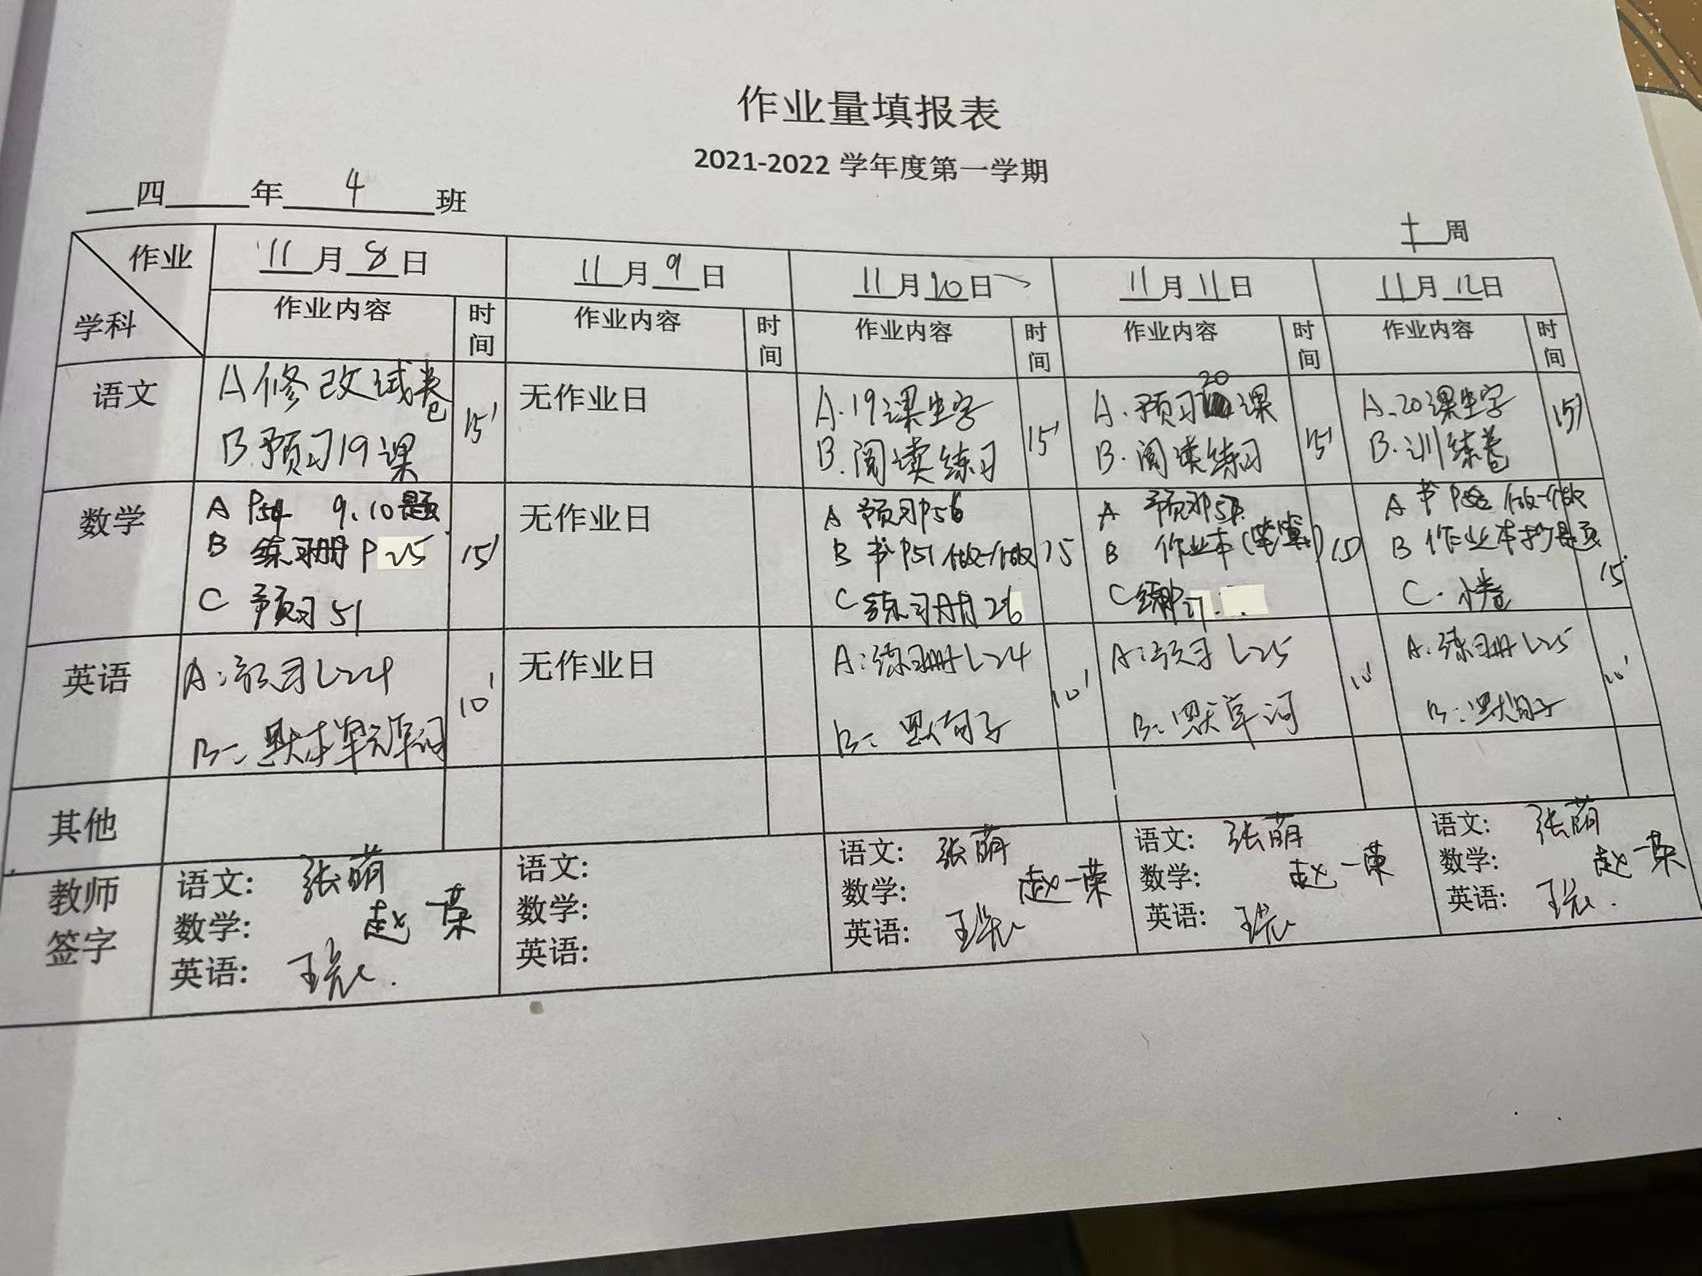 作业量填报表
2021-2022 学年度第一学期
四 年 4 班
十 周
作业
学科
11 月 8 日
11 月 9 日
11 月 10 日
11 月 11 日
11 月 12 日
作业内容 时间
作业内容 时间
作业内容 时间
作业内容 时间
作业内容 时间
语文
A 修改试卷
B.预习19课
15'
无作业日
A.19课生字
B.阅读练习
15'
A.预习20课
B.阅读练习
15'
A.20课生字
B.训练卷
15'
数学
A P54 9、10题
B 练习册P25
C 预习51
15'
无作业日
A 预习P56
B 书P51做一做
C 练习册26
15
A 预习
B 作业本
C
15'
A 书 做一做
B 作业本抄题
C. 小卷
15'
英语
A:预习L24
B: 默本单元单词
10'
无作业日
A:练习册L24
B: 默句子
10'
A:预习L25
B: 默单词
10'
A:练习册L25
B:默句子
10'
其他
教师签字
语文: 张萌
数学: 赵一荣
英语: 王
语文:
数学:
英语:
语文: 张萌
数学: 赵一荣
英语: 王
语文: 张萌
数学: 赵一荣
英语: 王
语文: 张萌
数学: 赵一荣
英语: 王